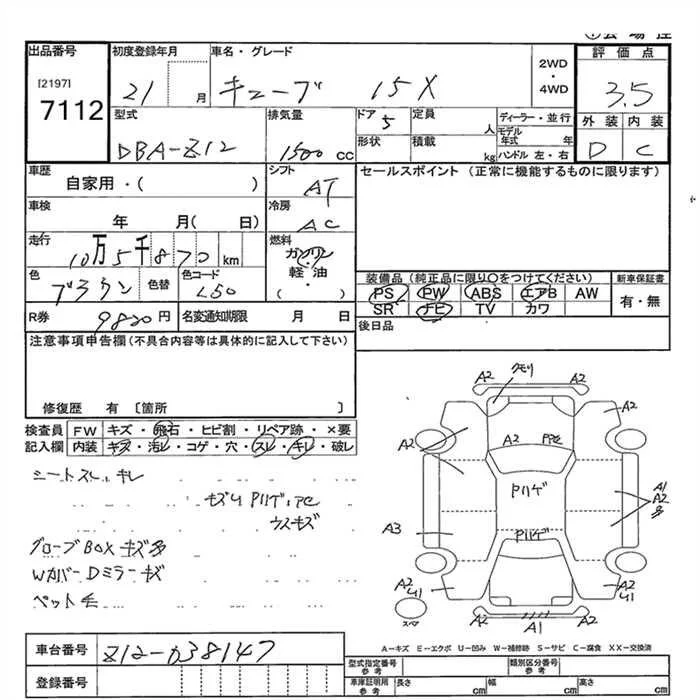 出品番号
[2197]
7112
初度登録年月
21 月
車名・グレード
キューブ 15X
2WD
・
4WD
評価点
3.5
外装 内装
D C
型式
DBA-Z12
排気量
1500 CC
ドア 5
定員 人
ディーラー・並行
モデル年式 年
形状
積載 kg
ハンドル 左・右
車歴
自家用・( )
シフト
AT
セールスポイント (正常に機能するものに限ります)
車検
年 月( 日)
冷房
AC
走行
10万5千870 km
燃料
ガソリン
軽・油
( )
色
ブラウン
色替
色コード
L50
装備品 (純正品に限り○をつけてください)
新車保証書
PS PW ABS エアB AW
有・無
SR ナビ TV カワ
R券 9820円
名変通知期限 月 日
後日品
注意事項申告欄 (不具合内容等は具体的に記入して下さい)
修復歴 有 〔箇所 〕
検査員記入欄
FW キズ・飛石・ヒビ割・リペア跡・×要
内装 キズ・汚レ・コゲ・穴・スレ・キレ・破レ
シートスレ、キレ
ウスキズ
グローブBOXキズ多
WカバーDミラーキズ
ペット毛
クモリ
A2 A2
A2
A2
A2
Pハゲ
A1
A2
多
A3
Pハゲ
A2
U1
A2
U1
スペア
A2 A1 A2
A-キズ E-エクボ U-凹み W-補修跡 S-サビ C-腐食 XX-交換済
車台番号
Z12-038147
登録番号
型式指定番号
参考
類別区分番号
参考
車庫証明用
参考
長さ cm
幅 cm
高さ cm